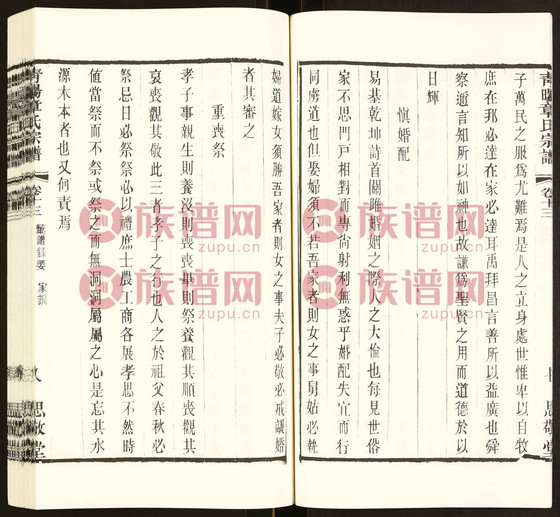 青暘章氏宗譜
卷十三
思敬堂
子萬民之服爲尤難焉是人之立身處世惟卑以自牧
庶在邦必達在家必達耳禹拜昌言善所以益廣也舜
察邇言知所以神也故謙爲聖賢之用而道德於以
日輝
愼婚配
易基乾坤詩首關雎婚姻之際人之大倫也每見世俗
家不思門戸相對而專尚射利無惑乎婚配失宜而行
同虜道也但娶婦須不若吾家者則女之事舅姑必執
婦道嫁女須勝吾家者則女之事夫子必敬必戒議婚
者其審之
重喪祭
孝子事親生則養沒則喪喪畢則祭養觀其順喪觀其
哀喪觀其敬此三者孝子之行也人之於祖父春秋必
祭忌日必祭祭必以禮庶士農工商各展孝思不然時
値當祭而不祭或祭之而無洞洞屬屬之心是忘其水
源木本者也又何責焉
青暘章氏宗譜
卷十三
家訓
八
思敬堂
族谱网
zupu.cn
族谱网
zupu.cn
族谱网
zupu.cn
族谱网
zupu.cn